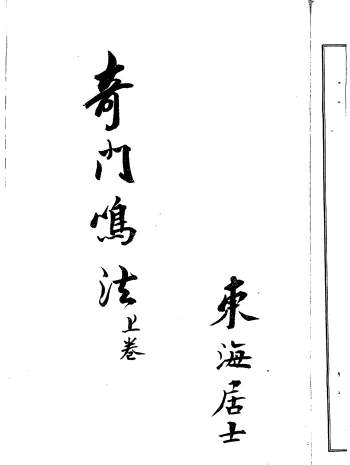 東海居士
奇門鳴法上卷